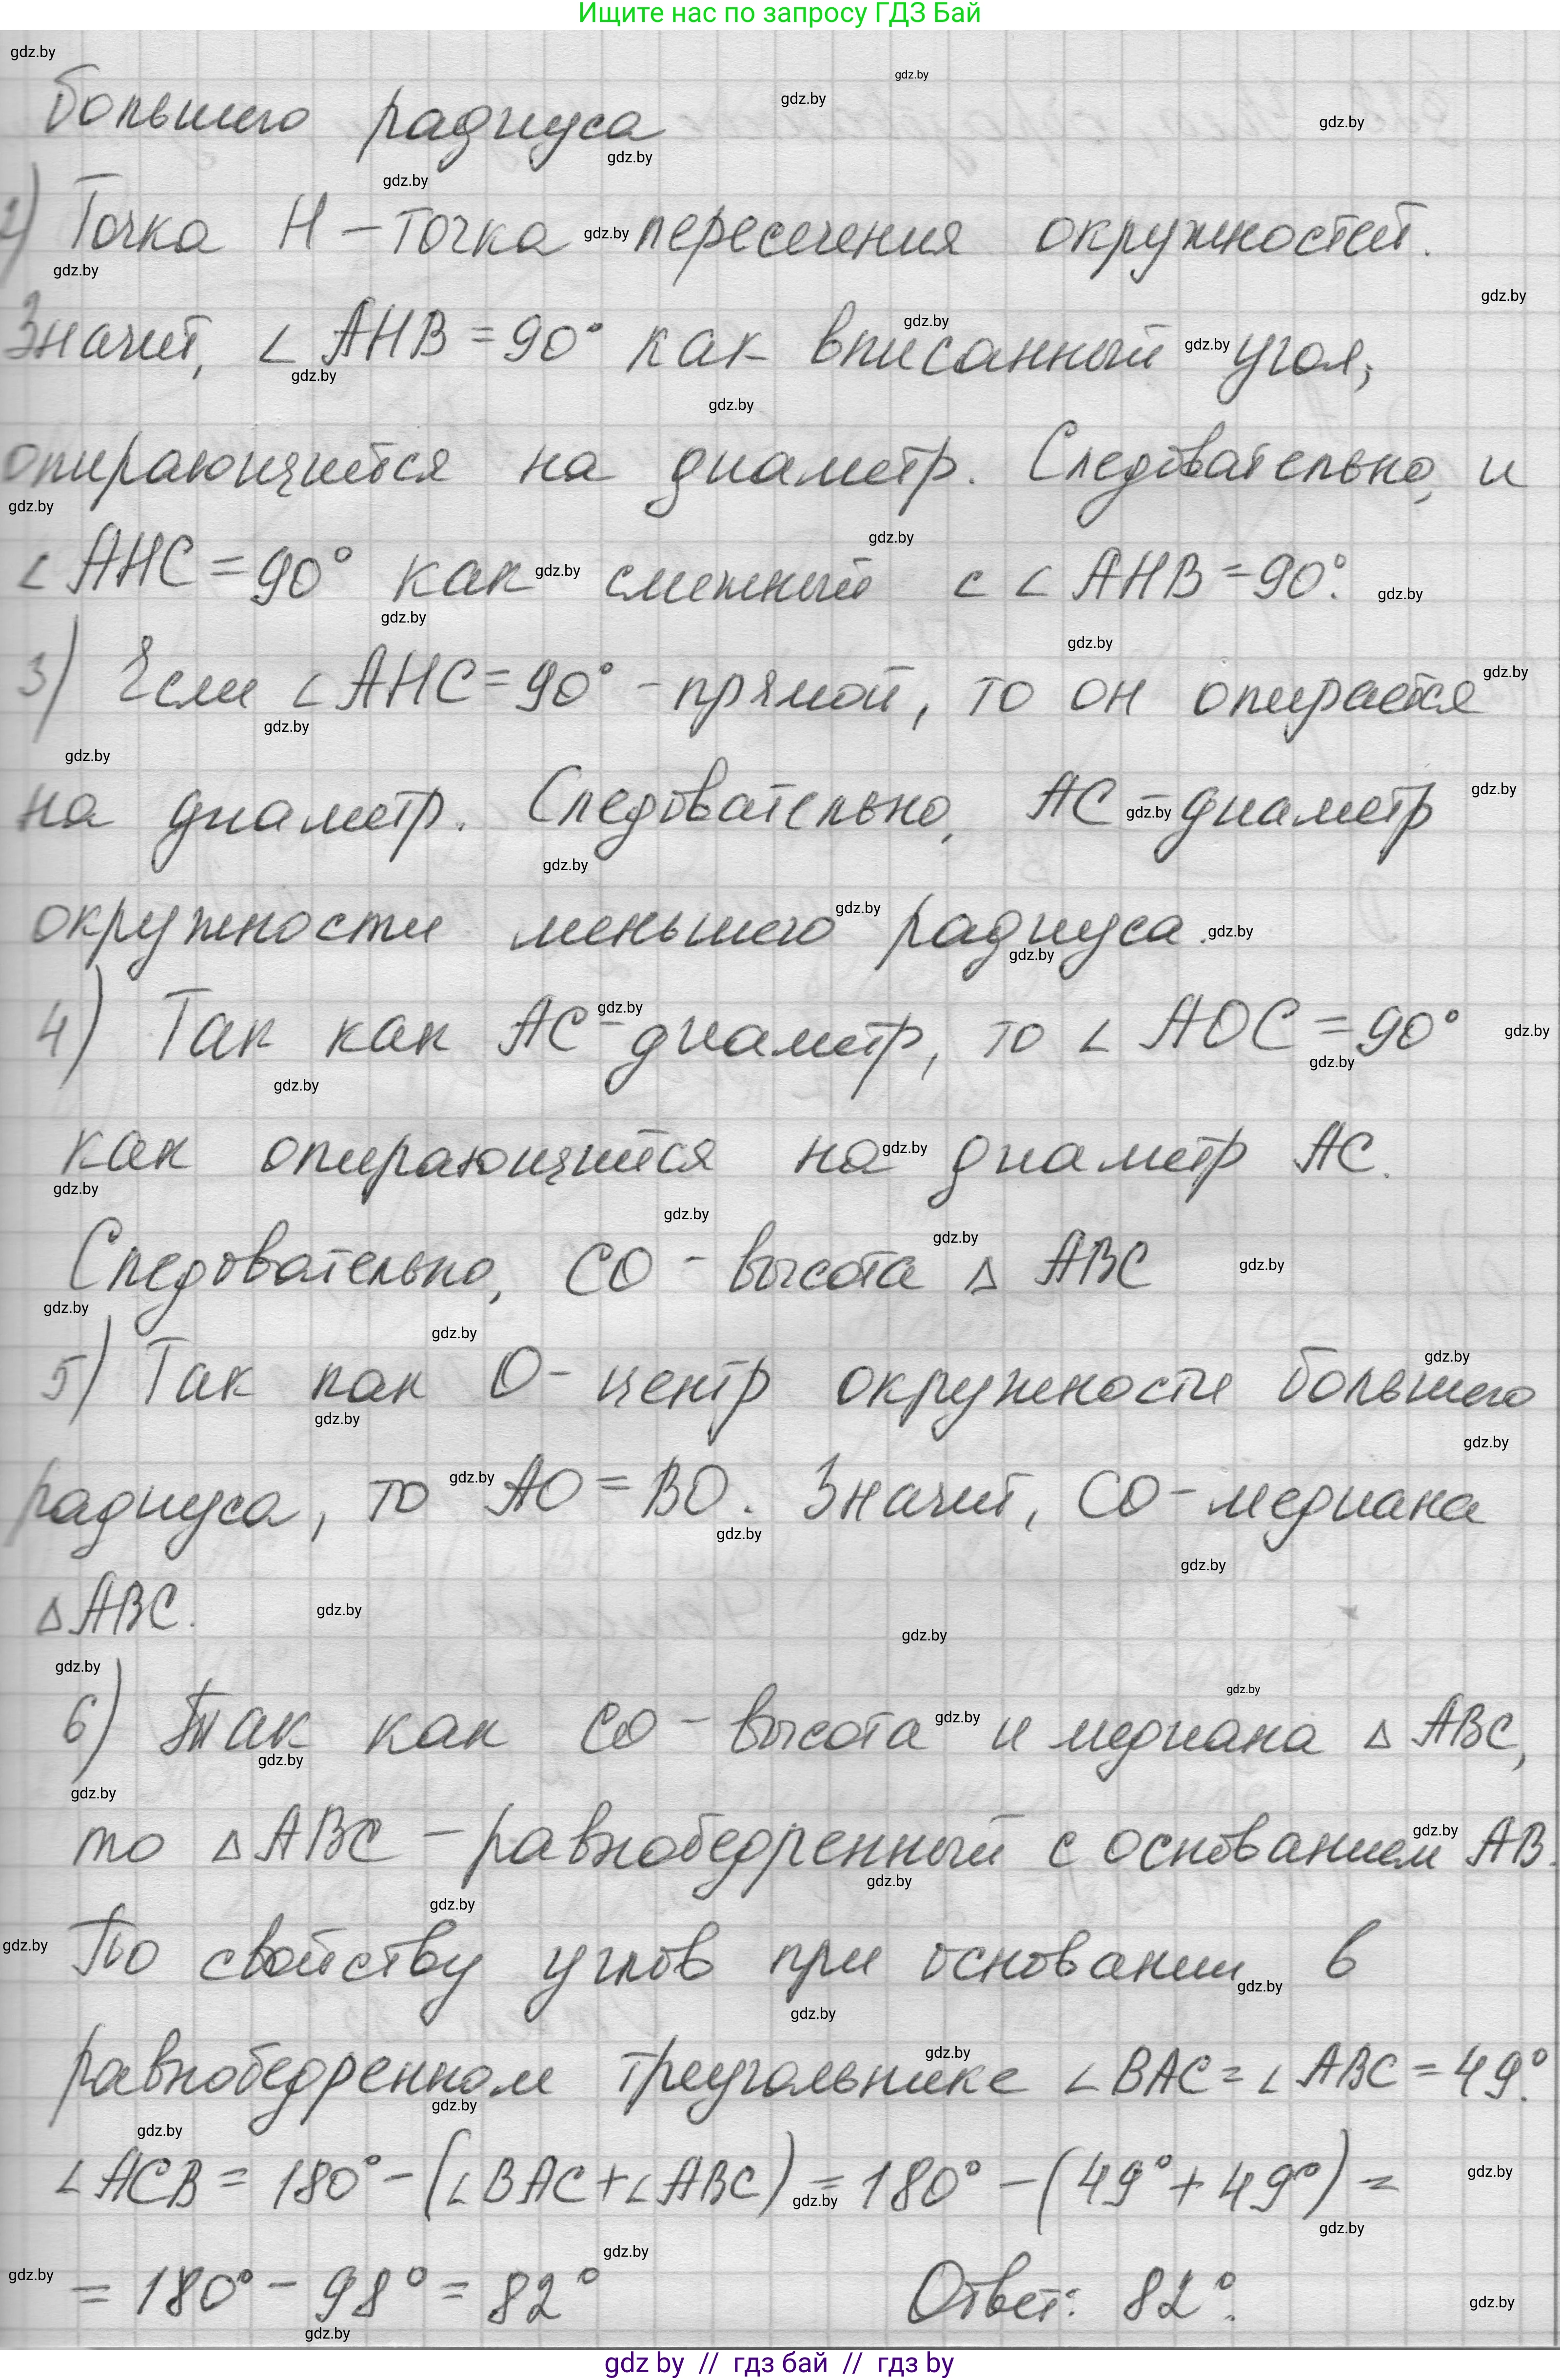 Ищите нас по запросу ГДЗ Бай
большего радиуса
2) Точка H – точка пересечения окружностей.
Значит, ∠AHB = 90° как вписанный угол,
опирающийся на диаметр. Следовательно, и
∠AHC = 90° как смежный с ∠AHB = 90°.
3) Если ∠AHC = 90° - прямой, то он опирается
на диаметр. Следовательно, AC – диаметр
окружности меньшего радиуса.
4) Так как AC – диаметр, то ∠AOC = 90°
как опирающийся на диаметр AC.
Следовательно, CO – высота △ABC
5) Так как O – центр окружности большего
радиуса, то AO = BO. Значит, CO – медиана
△ABC.
6) Так как CO – высота и медиана △ABC,
то △ABC – равнобедренный с основанием AB.
По свойству углов при основании в
равнобедренном треугольнике ∠BAC = ∠ABC = 49°.
∠ACB = 180° – (∠BAC + ∠ABC) = 180° – (49° + 49°) =
= 180° – 98° = 82° Ответ: 82°.
gdz by // гдз бай // гдз by